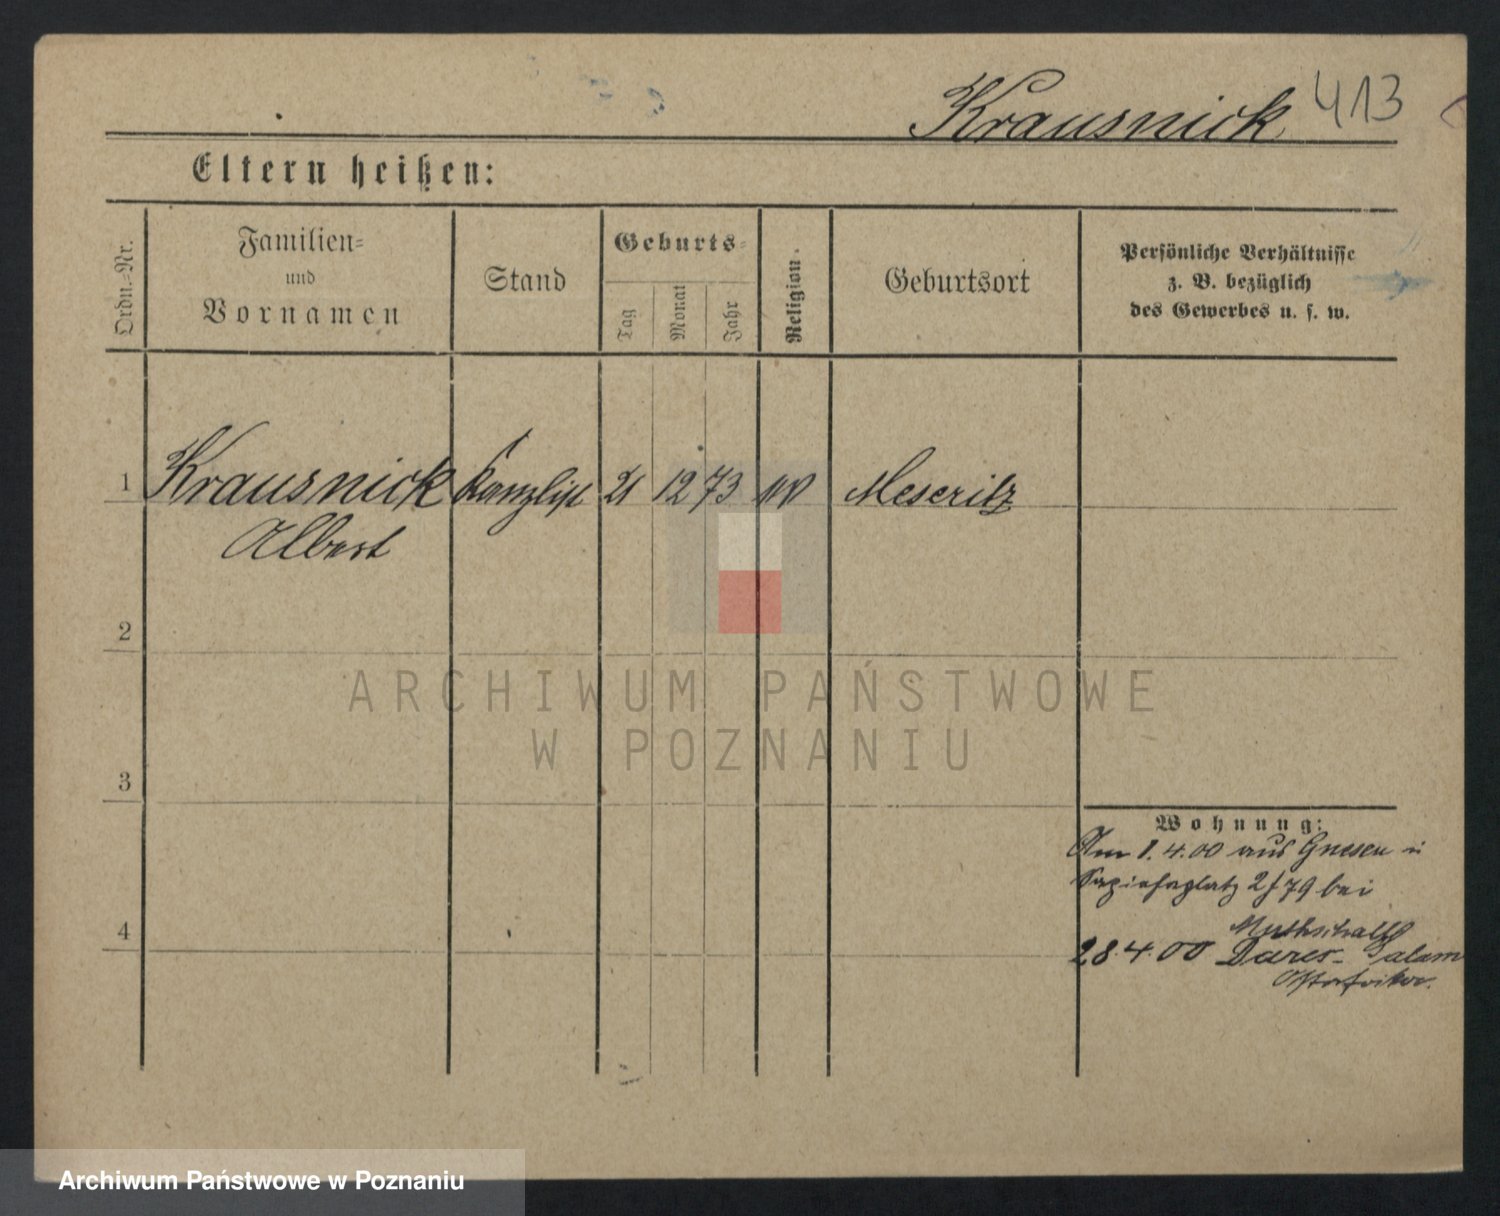 Krausnick 413
Eltern heißen:
Ordn.-Nr.
Familien-
und
Vornamen
Stand
Geburts-
Tag
Monat
Jahr
Religion.
Geburtsort
Persönliche Verhältnisse
z. B. bezüglich
des Gewerbes u. s. w.
1 Krausnick Kanzlist 21 12 73 Meseritz
Albert
2
ARCHIWUM PAŃSTWOWE
W POZNANIU
3
Wohnung:
Am 1.4.00 aus Gnesen
Sapiehaplatz 2/79 bei
4
28.4.00 Dares-Salam
Ostafrika.
Archiwum Państwowe w Poznaniu